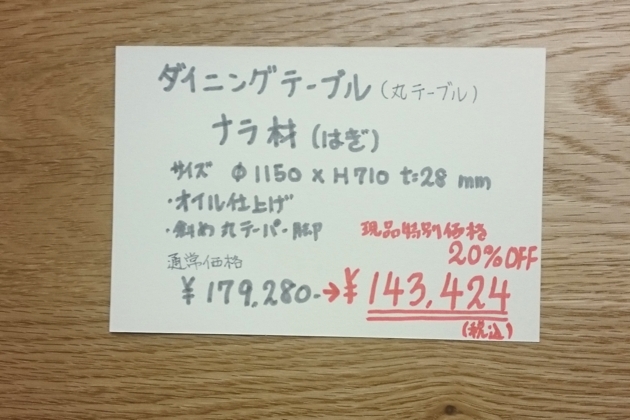 ダイニングテーブル（丸テーブル）
ナラ材（はぎ）
サイズ φ1150 x H710 t=28 mm
・オイル仕上げ
・斜め丸テーパー脚
現品特別価格
20%OFF
通常価格
¥179,280-→¥143,424
（税込）